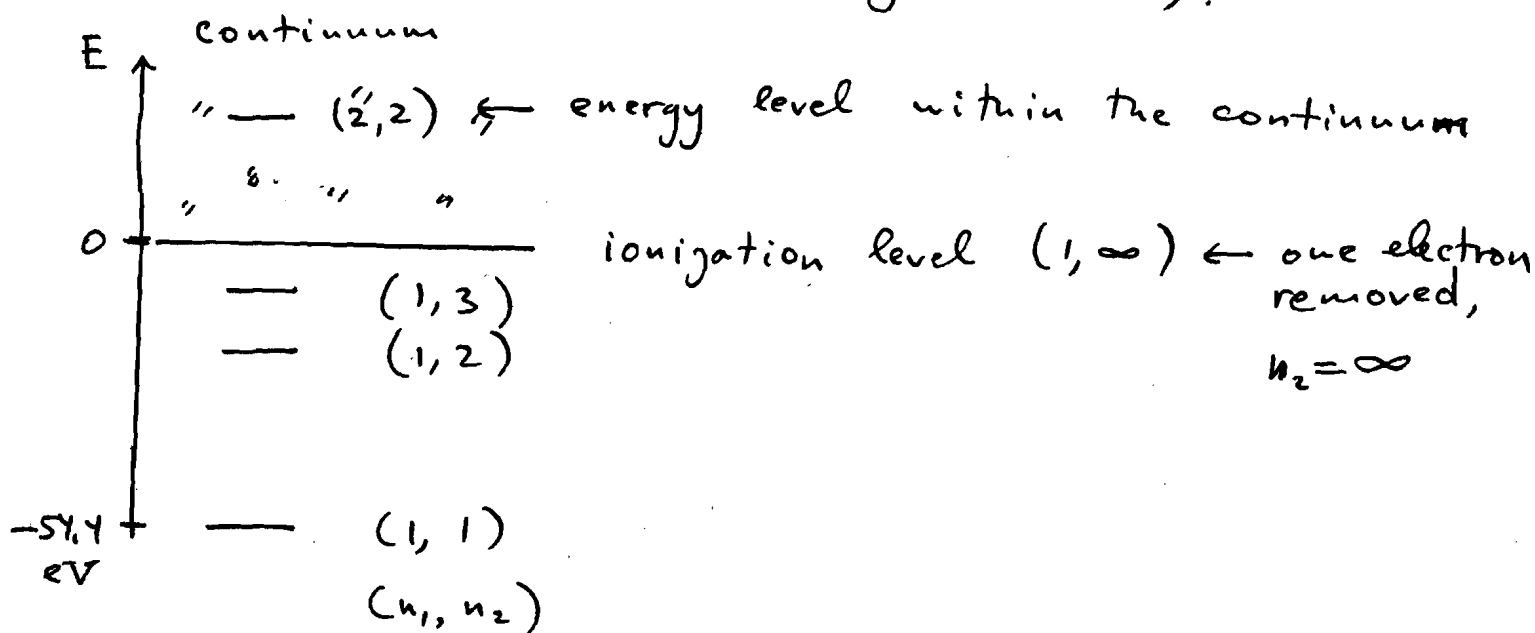 continuum
E
(2,2) ← energy level within the continuum
0
ionization level (1, ∞) ← one electron
removed,
n₂ = ∞
(1, 3)
(1, 2)
-54.4
eV
(1, 1)
(n₁, n₂)